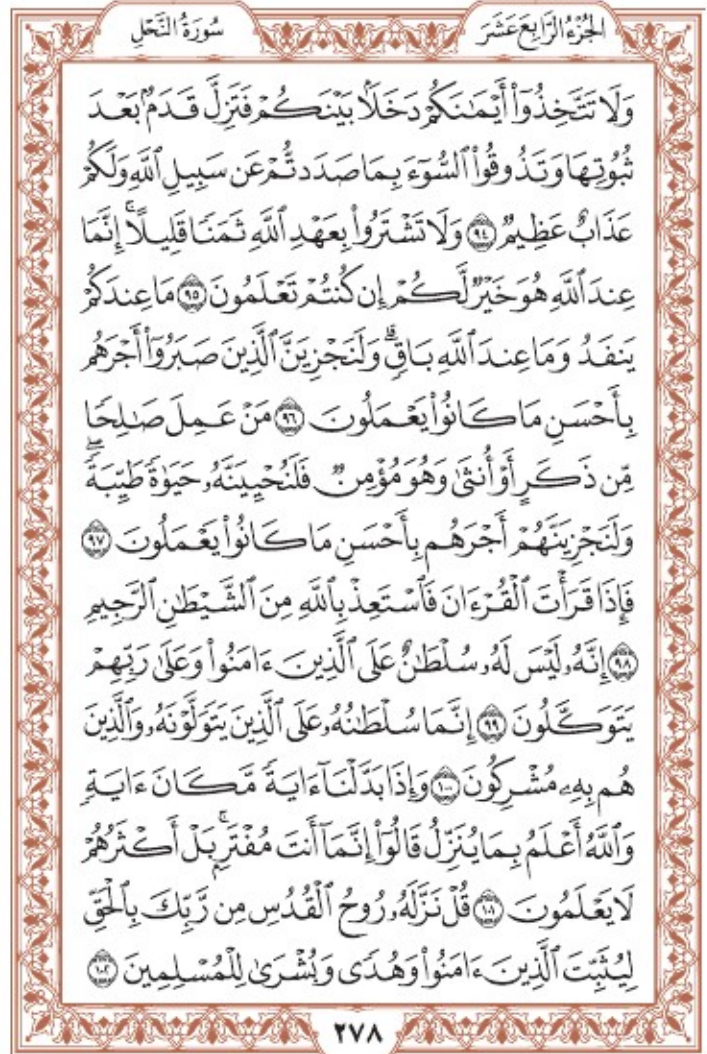 الجُزْءُ الرَّابِعَ عَشَرَ
سُورَةُ النَّحْلِ
وَلَا تَتَّخِذُوٓاْ أَيْمَٰنَكُمْ دَخَلَۢا بَيْنَكُمْ فَتَزِلَّ قَدَمُۢ بَعْدَ
ثُبُوتِهَا وَتَذُوقُواْ ٱلسُّوٓءَ بِمَا صَدَدتُّمْ عَن سَبِيلِ ٱللَّهِ وَلَكُمْ
عَذَابٌ عَظِيمٌ ٩٤ وَلَا تَشْتَرُواْ بِعَهْدِ ٱللَّهِ ثَمَنًا قَلِيلًا ۚ إِنَّمَا
عِندَ ٱللَّهِ هُوَ خَيْرٌ لَّكُمْ إِن كُنتُمْ تَعْلَمُونَ ٩٥ مَا عِندَكُمْ
يَنفَدُ وَمَا عِندَ ٱللَّهِ بَاقٍ ۗ وَلَنَجْزِيَنَّ ٱلَّذِينَ صَبَرُوٓاْ أَجْرَهُم
بِأَحْسَنِ مَا كَانُواْ يَعْمَلُونَ ٩٦ مَنْ عَمِلَ صَٰلِحًا
مِّن ذَكَرٍ أَوْ أُنثَىٰ وَهُوَ مُؤْمِنٌ فَلَنُحْيِيَنَّهُۥ حَيَوٰةً طَيِّبَةً ۖ
وَلَنَجْزِيَنَّهُمْ أَجْرَهُم بِأَحْسَنِ مَا كَانُواْ يَعْمَلُونَ ٩٧
فَإِذَا قَرَأْتَ ٱلْقُرْءَانَ فَٱسْتَعِذْ بِٱللَّهِ مِنَ ٱلشَّيْطَٰنِ ٱلرَّجِيمِ
٩٨ إِنَّهُۥ لَيْسَ لَهُۥ سُلْطَٰنٌ عَلَى ٱلَّذِينَ ءَامَنُواْ وَعَلَىٰ رَبِّهِمْ
يَتَوَكَّلُونَ ٩٩ إِنَّمَا سُلْطَٰنُهُۥ عَلَى ٱلَّذِينَ يَتَوَلَّوْنَهُۥ وَٱلَّذِينَ
هُم بِهِۦ مُشْرِكُونَ ١٠٠ وَإِذَا بَدَّلْنَآ ءَايَةً مَّكَانَ ءَايَةٍ
وَٱللَّهُ أَعْلَمُ بِمَا يُنَزِّلُ قَالُوٓاْ إِنَّمَآ أَنتَ مُفْتَرٍۭ ۚ بَلْ أَكْثَرُهُمْ
لَا يَعْلَمُونَ ١٠١ قُلْ نَزَّلَهُۥ رُوحُ ٱلْقُدُسِ مِن رَّبِّكَ بِٱلْحَقِّ
لِيُثَبِّتَ ٱلَّذِينَ ءَامَنُواْ وَهُدًى وَبُشْرَىٰ لِلْمُسْلِمِينَ ١٠٢
٢٧٨